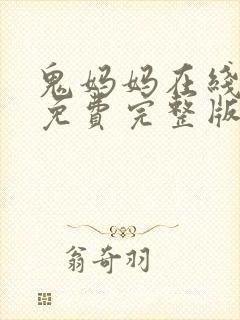 鬼妈妈在线
免费完整版
翁奇羽